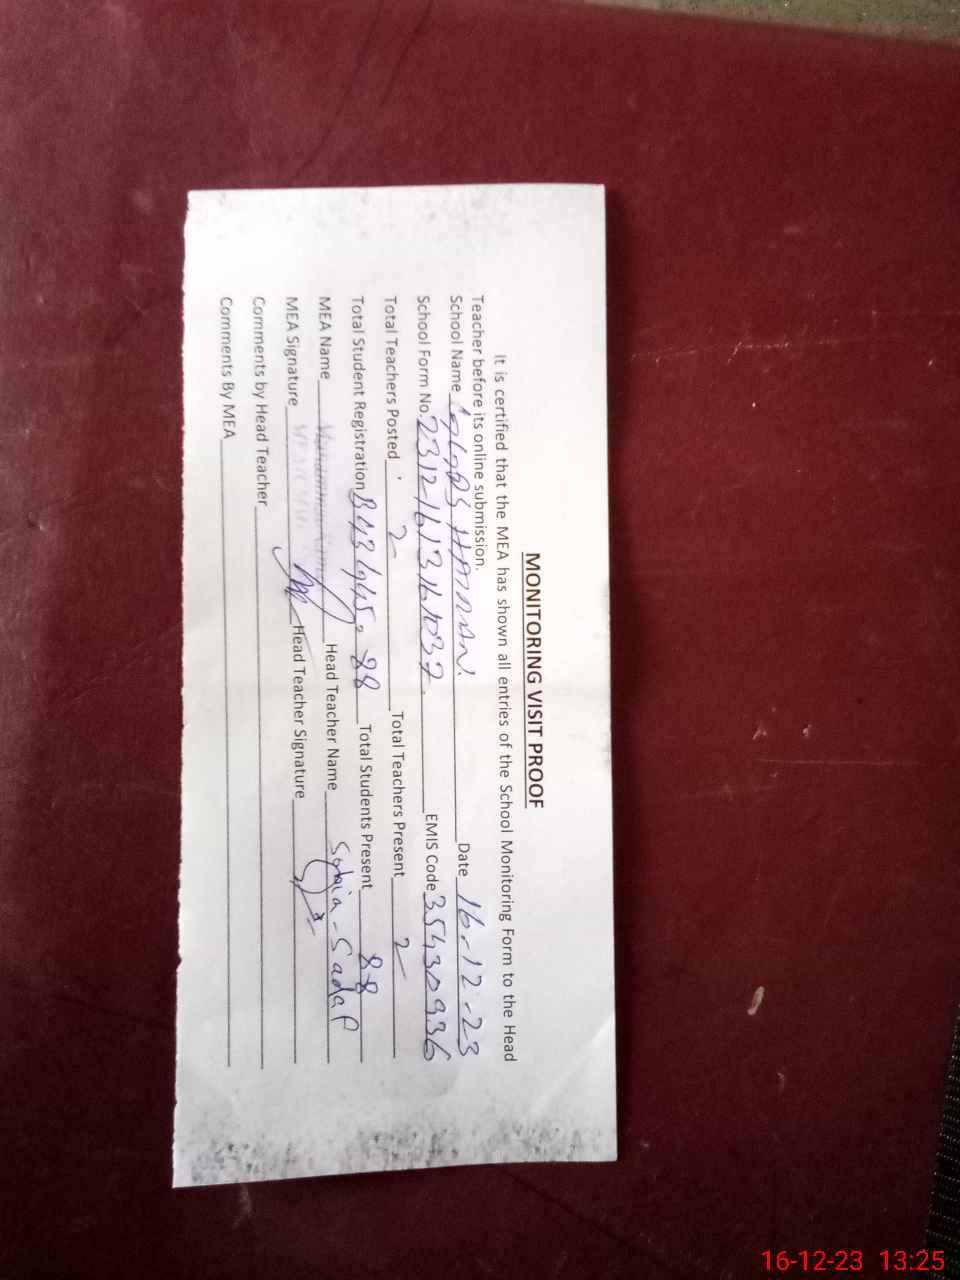 MONITORING VISIT PROOF
It is certified that the MEA has shown all entries of the School Monitoring Form to the Head
Teacher before its online submission.
School Name HANNAN. Date 16-12-23
School Form No. EMIS Code 35430936
Total Teachers Posted 2 Total Teachers Present 2
Total Student Registration B43 G45 = 88 Total Students Present 88
MEA Name Muhammad Head Teacher Name Sobia-Sadaf
MEA Signature Head Teacher Signature
Comments by Head Teacher
Comments By MEA
16-12-23 13:25